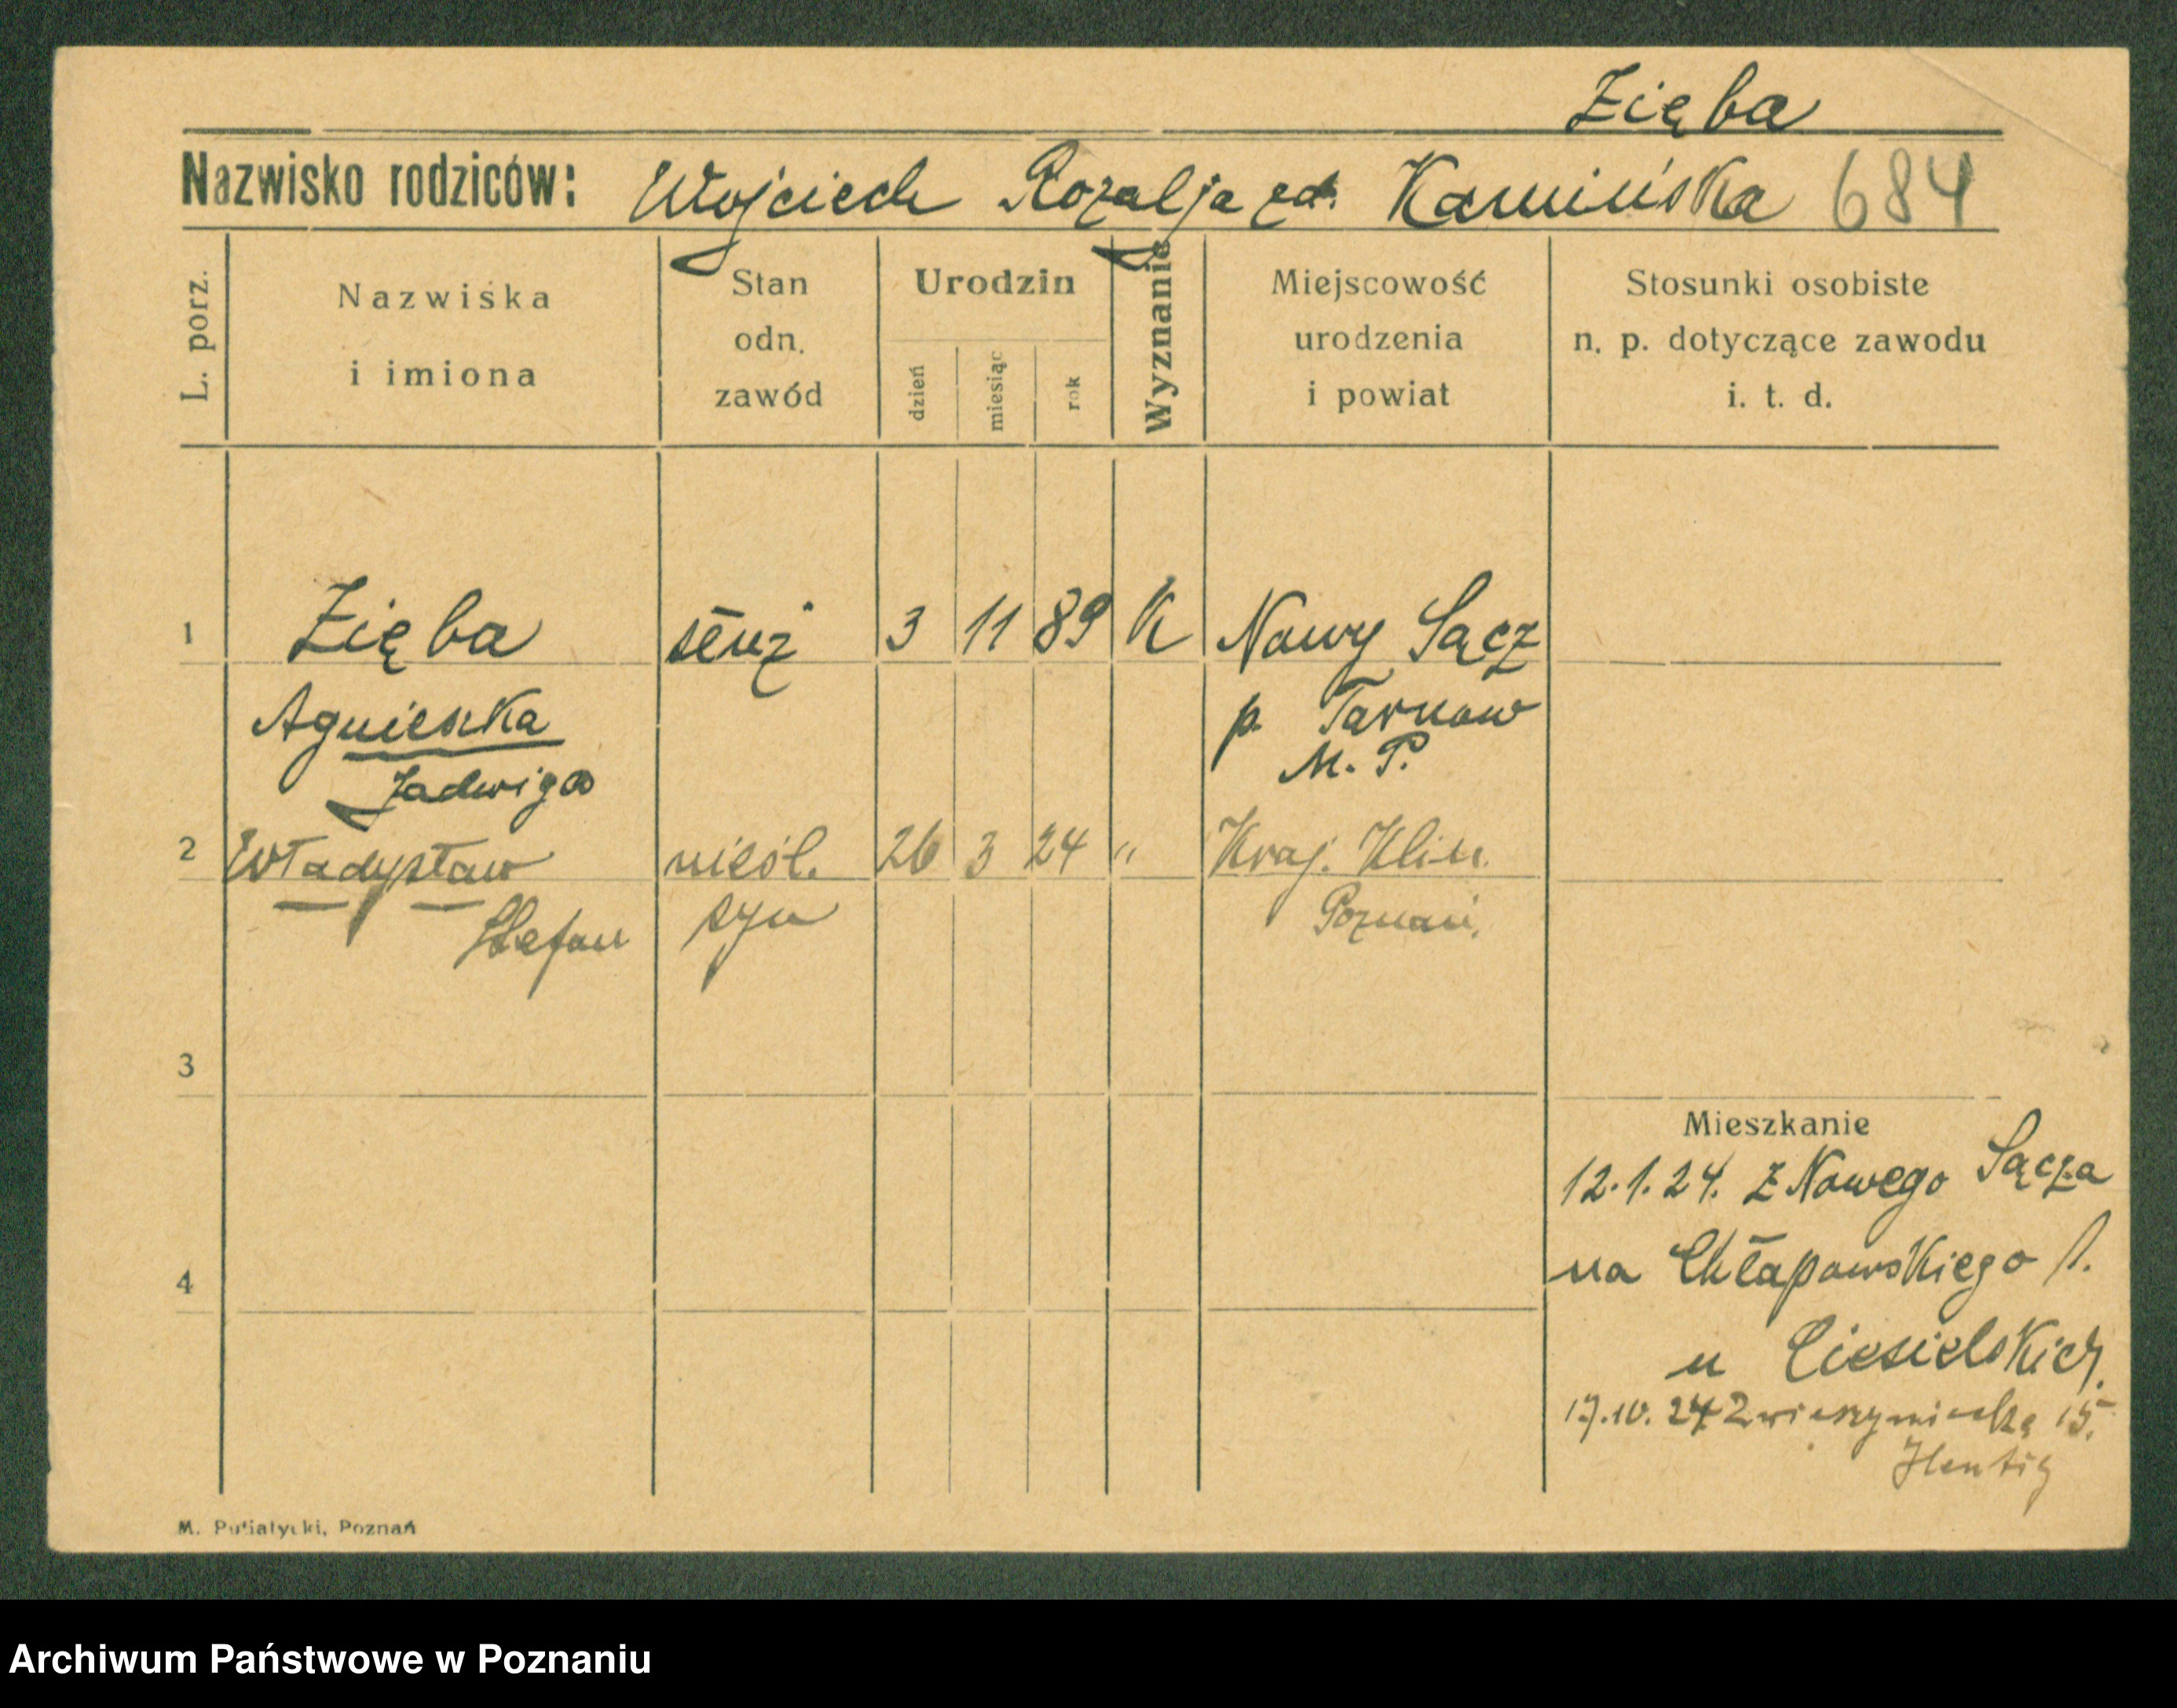 Zięba
Nazwisko rodziców: Wojciech Rozalja zd. Kamińska 684
L. porz.
Nazwiska
i imiona
Stan
odn.
zawód
Urodzin
dzień
miesiąc
rok
Wyznanie
Miejscowość
urodzenia
i powiat
Stosunki osobiste
n. p. dotyczące zawodu
i. t. d.
1 Zięba 3 11 89 K Nowy Sącz
Agnieszka p. Tarnow
Jadwiga M. P.
2 Władysław nieśl. 26 3 24 " Kraj. Klin.
Stefan syn Poznań.
3
4
Mieszkanie
12.1.24. z Nowego Sącza
na Chłapowskiego 1.
u Ciesielskich
17.10.24 Zwierzyniecka 15.
Hentig
M. Putiatycki, Poznań
Archiwum Państwowe w Poznaniu